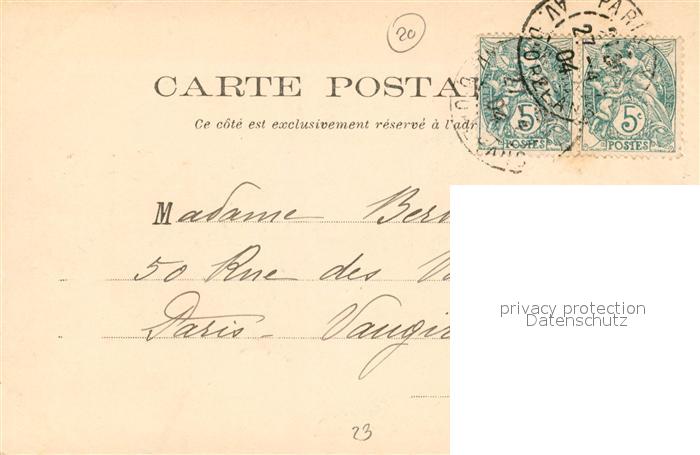 20
CARTE POSTA
Ce côté est exclusivement réservé à l'adr
5c 5c
POSTES POSTES
PARIS
AV. D'ORLÉANS
27 - 4
04
Madame Ber
50 Rue des V
Paris - Vaugir
privacy protection
Datenschutz
23